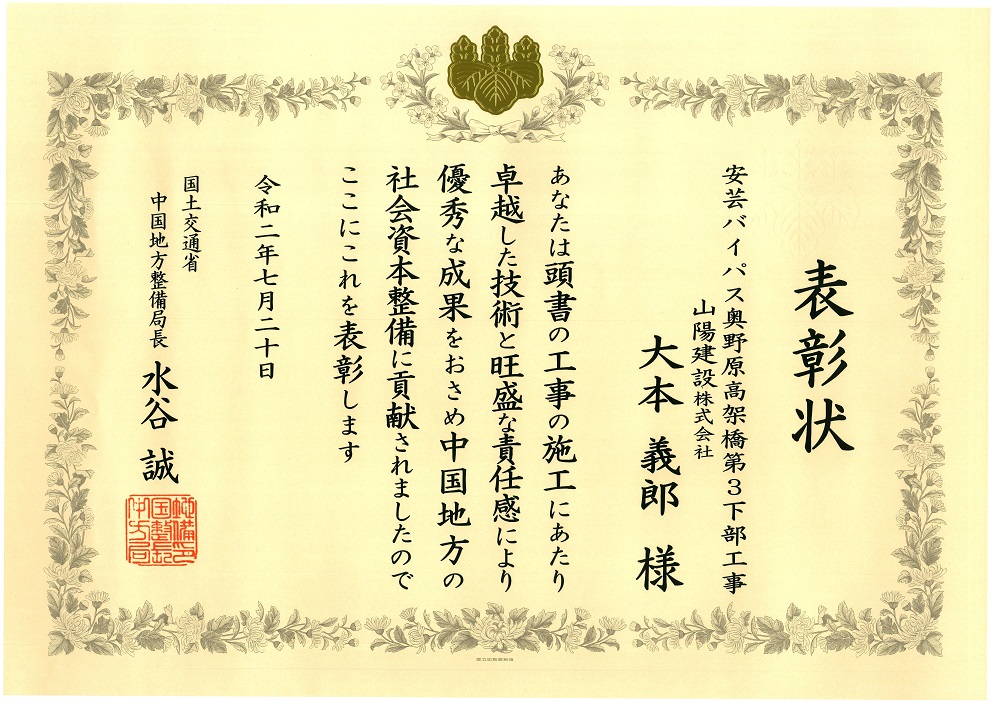 表彰状
安芸バイパス奥野原高架橋第3下部工事
山陽建設株式会社
大本 義郎 様
あなたは頭書の工事の施工にあたり
卓越した技術と旺盛な責任感により
優秀な成果をおさめ中国地方の
社会資本整備に貢献されましたので
ここにこれを表彰します
令和二年七月二十日
国土交通省
中国地方整備局長 水谷 誠